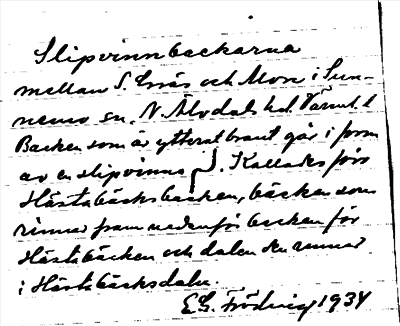 Slipvinnbackarna
mellan S. Enås och Mon i Sun-
nemo sn. N. Älvdals hd. Värml. l
Backen som är ytterst brant går i form
av en slipvinna. Kallades förr
Hästabäcksbacken, bäcken som
rinner fram nedanför backen för
Hästabäcken och dalen den rinner
i Hästabäcksdalen.
E.G. Frödvig 1934